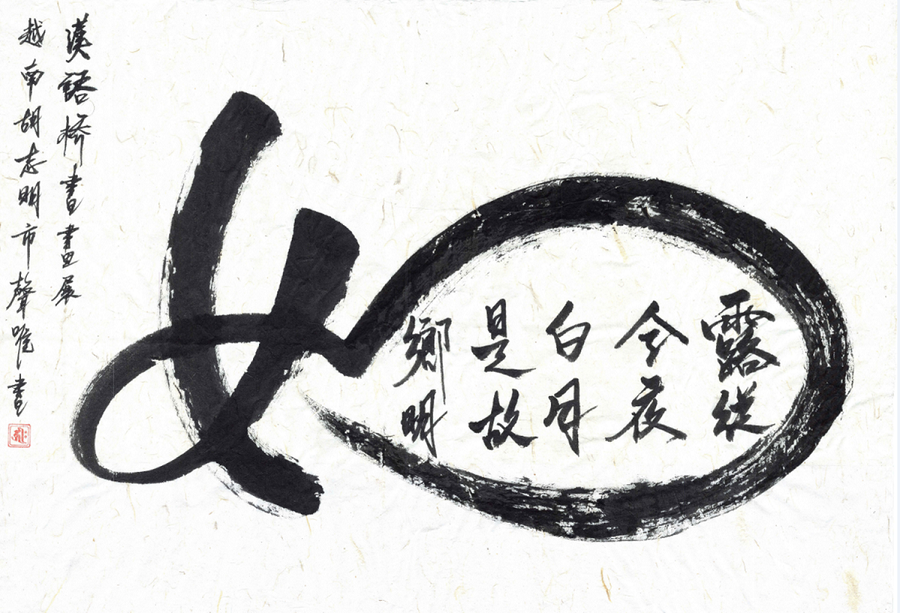 如
露從
今夜
白月
是故
鄉明
漢語橋書畫展
越南胡志明市聲唯書